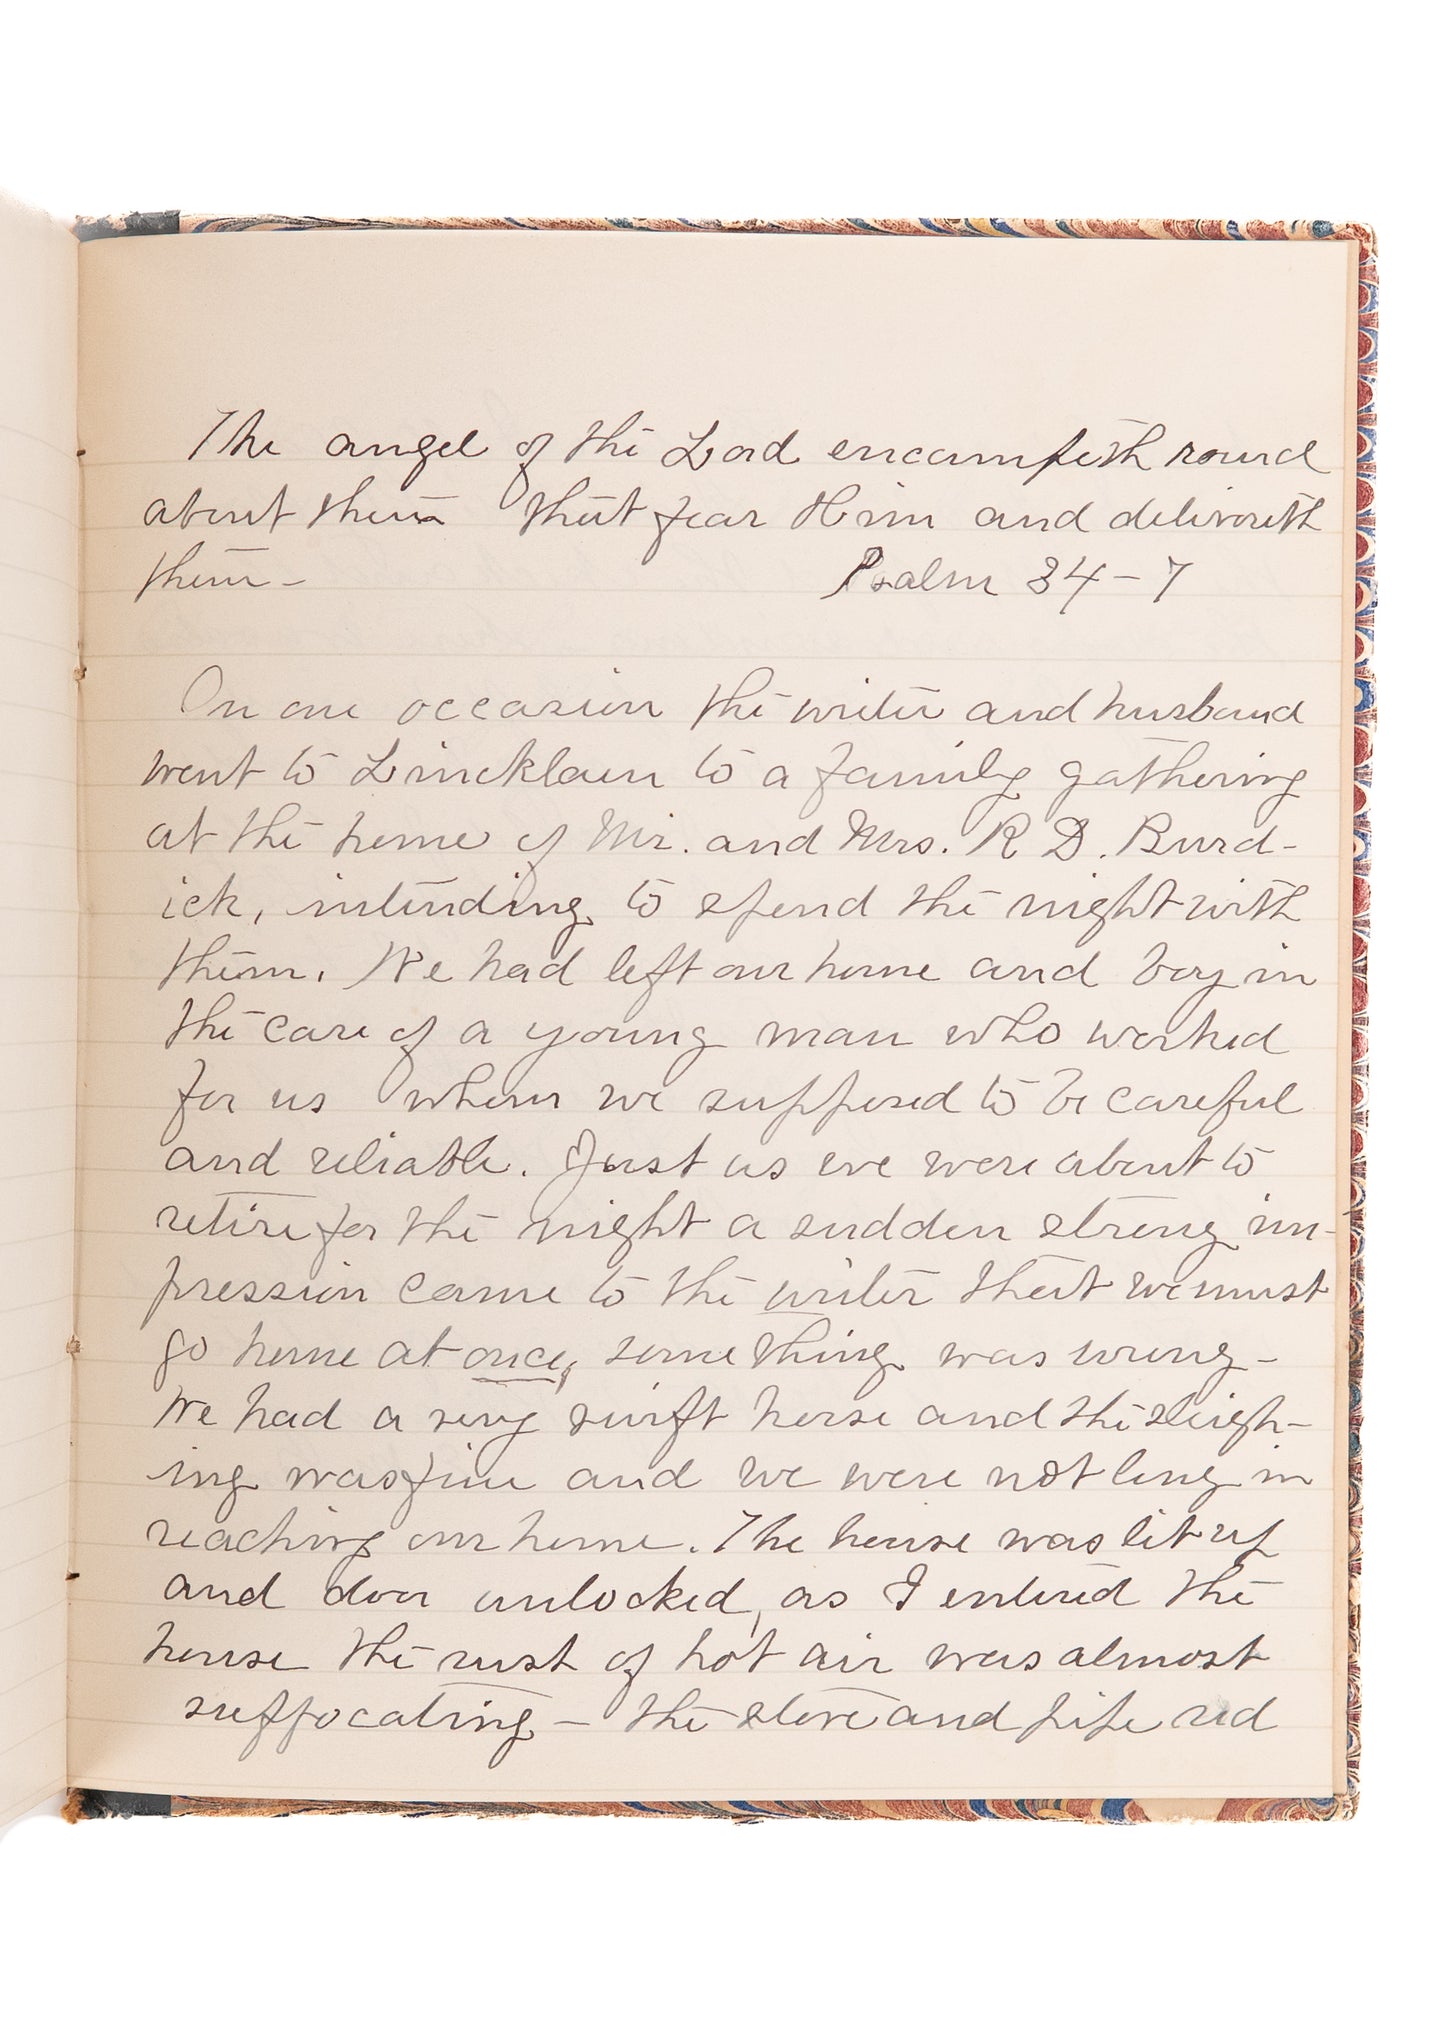 The angel of the Lord encampeth round
about them that fear Him and delivereth
them – Psalm 34–7
On one occasion the writer and husband
went to Lincklaen to a family gathering
at the home of Mr. and Mrs. R D. Burd-
ick, intending to spend the night with
them. We had left our home and boy in
the care of a young man who worked
for us whom we supposed to be careful
and reliable. Just as we were about to
retire for the night a sudden strong im-
pression came to the writer that we must
go home at once, something was wrong –
We had a very swift horse and the sleigh-
ing was fine and we were not long in
reaching our home. The house was lit up
and door unlocked, as I entered the
house the rust of hot air was almost
suffocating – the stove and pipe red